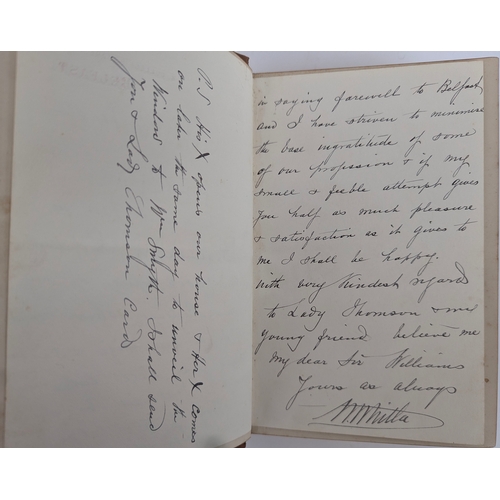 in saying farewell to Belfast
and I have striven to minimise
the base ingratitude of some
of our profession & if my
small & feeble attempt gives
you half as much pleasure
& satisfaction as it gives to
me I shall be happy.
With very kindest regards
to Lady Thomson & my
young friend believe me
My dear Sir William
Yours as always
W Whitla
P.S Her X opens our house & Her X comes
on later the same day to unveil the
Window to Wm Smyth. I shall send
You & Lady Thomson Card